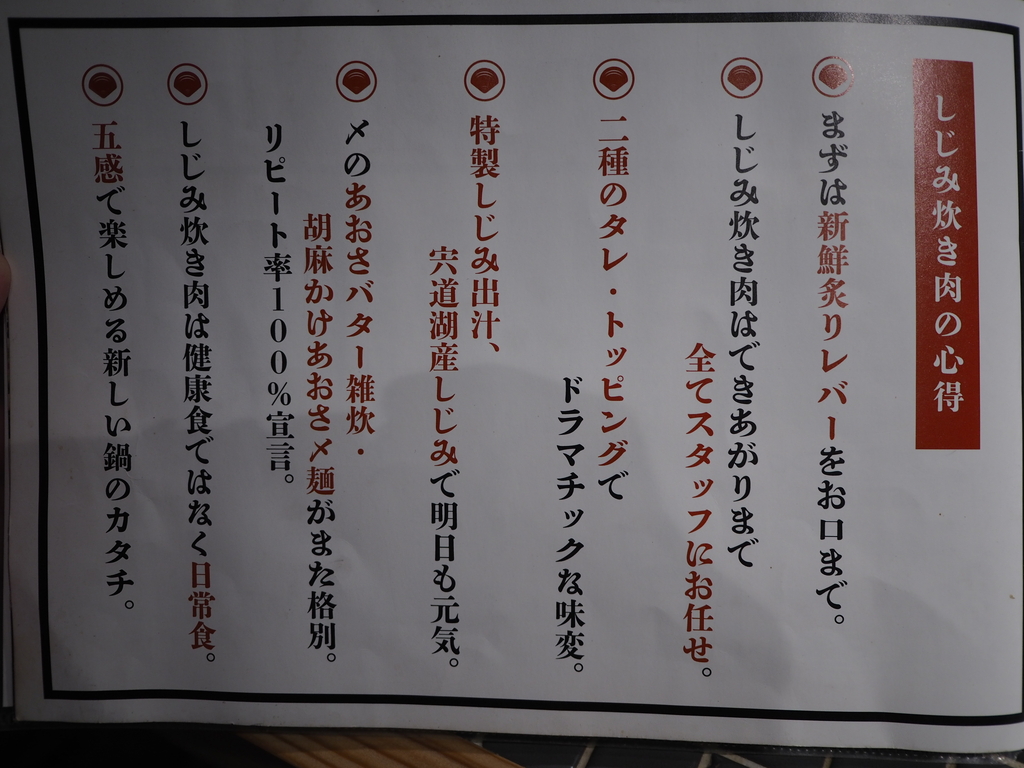 しじみ炊き肉の心得
まずは新鮮炙りレバーをお口まで。
しじみ炊き肉はできあがりまで
全てスタッフにお任せ。
二種のタレ・トッピングで
ドラマチックな味変。
特製しじみ出汁、
宍道湖産しじみで明日も元気。
〆のあおさバター雑炊・
胡麻かけあおさ〆麺がまた格別。
リピート率100%宣言。
しじみ炊き肉は健康食ではなく日常食。
五感で楽しめる新しい鍋のカタチ。